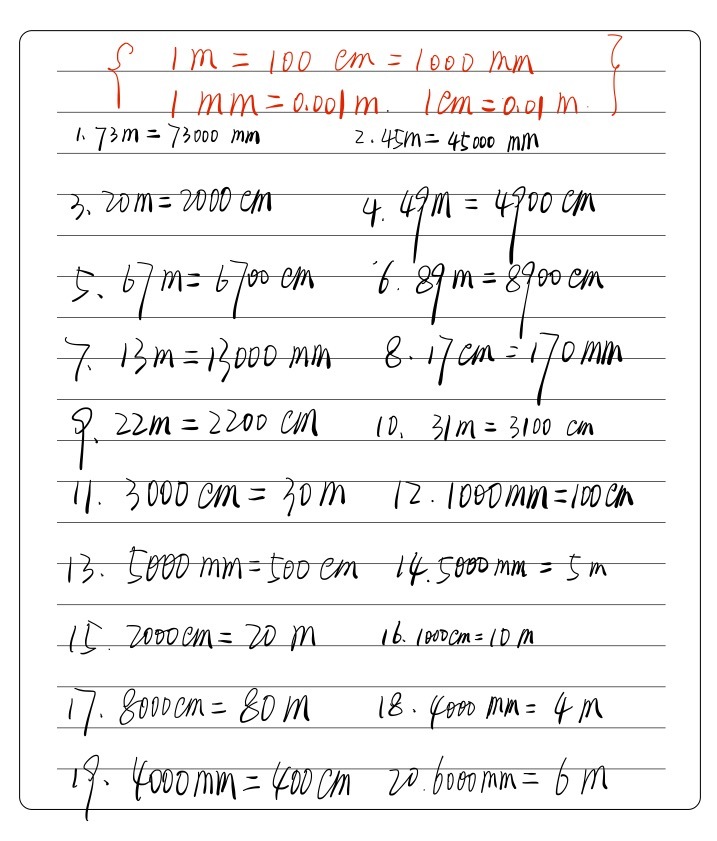 { 1 m = 100 cm = 1000 mm }
1 mm = 0.001 m. 1cm = 0.01 m.
1. 73m = 73000 mm 2. 45m = 45000 mm
3、20m = 2000 cm 4. 49m = 4900 cm
5、67m = 6700 cm 6. 89m = 8900 cm
7. 13m = 13000 mm 8. 17cm = 170mm
9. 22m = 2200 cm 10. 31m = 3100 cm
11. 3000 cm = 30 m 12. 1000mm = 100cm
13. 5000 mm = 500 cm 14. 5000 mm = 5 m
15. 2000cm = 20 m 16. 1000cm = 10 m
17. 8000cm = 80 m 18. 4000 mm = 4 m
19. 4000mm = 400cm 20. 6000mm = 6 m